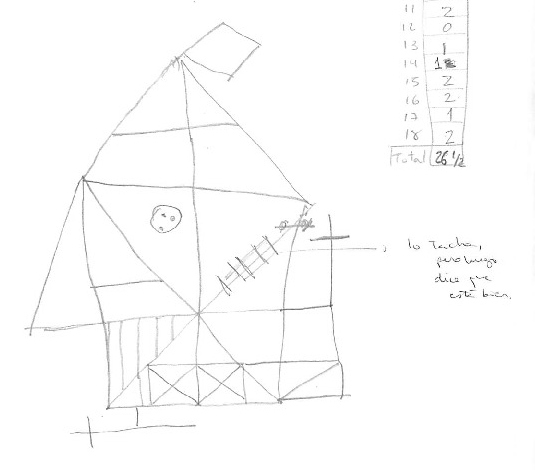 11 2
12 0
13 1
14 1
15 2
16 2
17 1
18 2
Total 26 1/2
lo tacha,
pero luego
dice que
está bien.